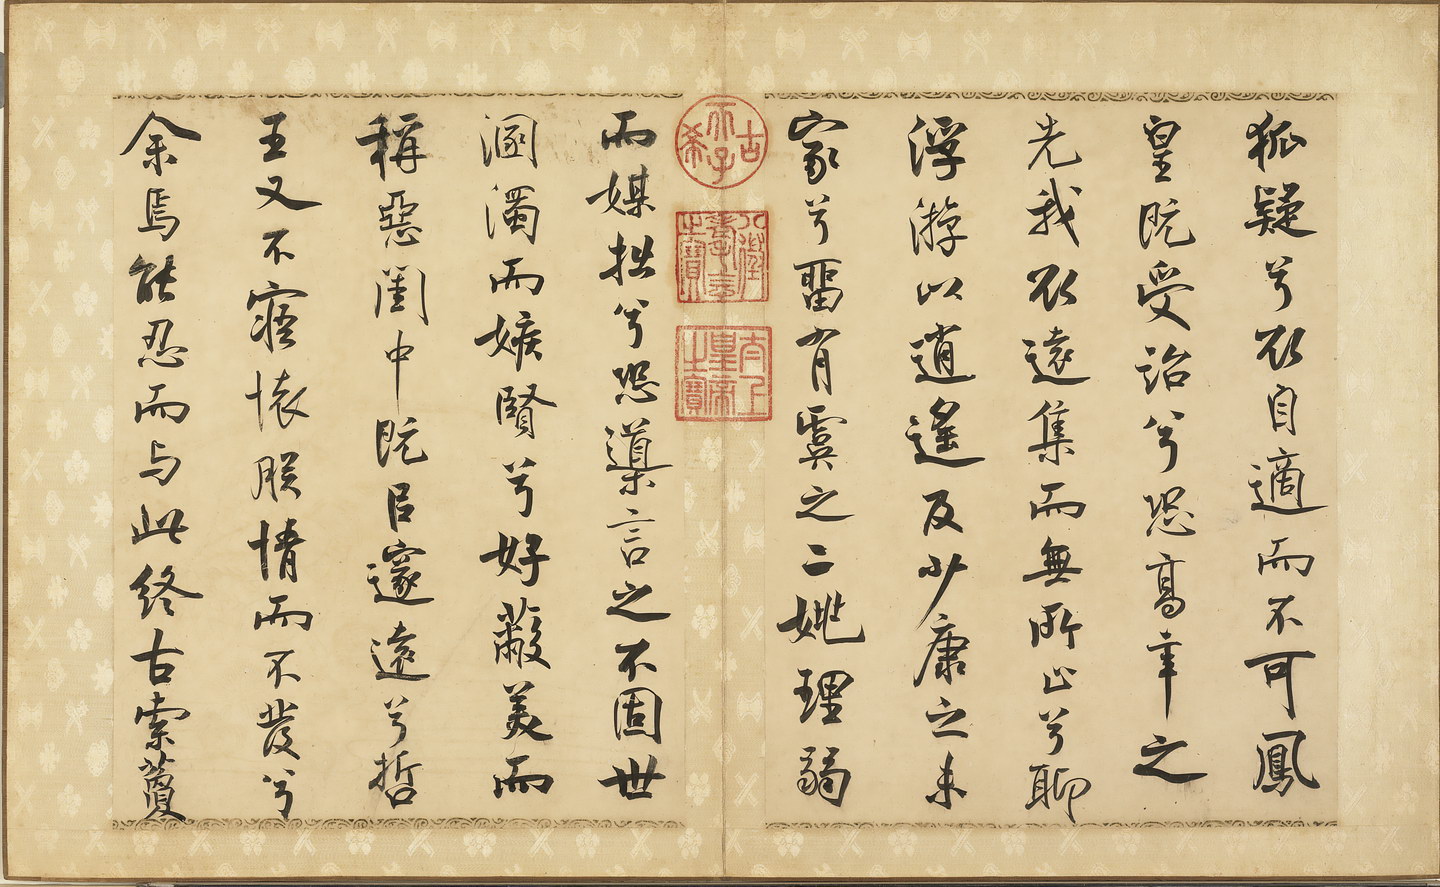 狐疑兮欲自適而不可鳳
皇既受詒兮恐高辛之
先我欲遠集而無所止兮聊
浮游以逍遙及少康之未
家兮畱有虞之二姚理弱
古希天子
八徵耄念之寶
太上皇帝之寶
而媒拙兮恐導言之不固世
溷濁而嫉賢兮好蔽美而
稱惡閨中既㠯邃遠兮哲
王又不寤懐朕情而不發兮
余焉能忍而与此終古索藑